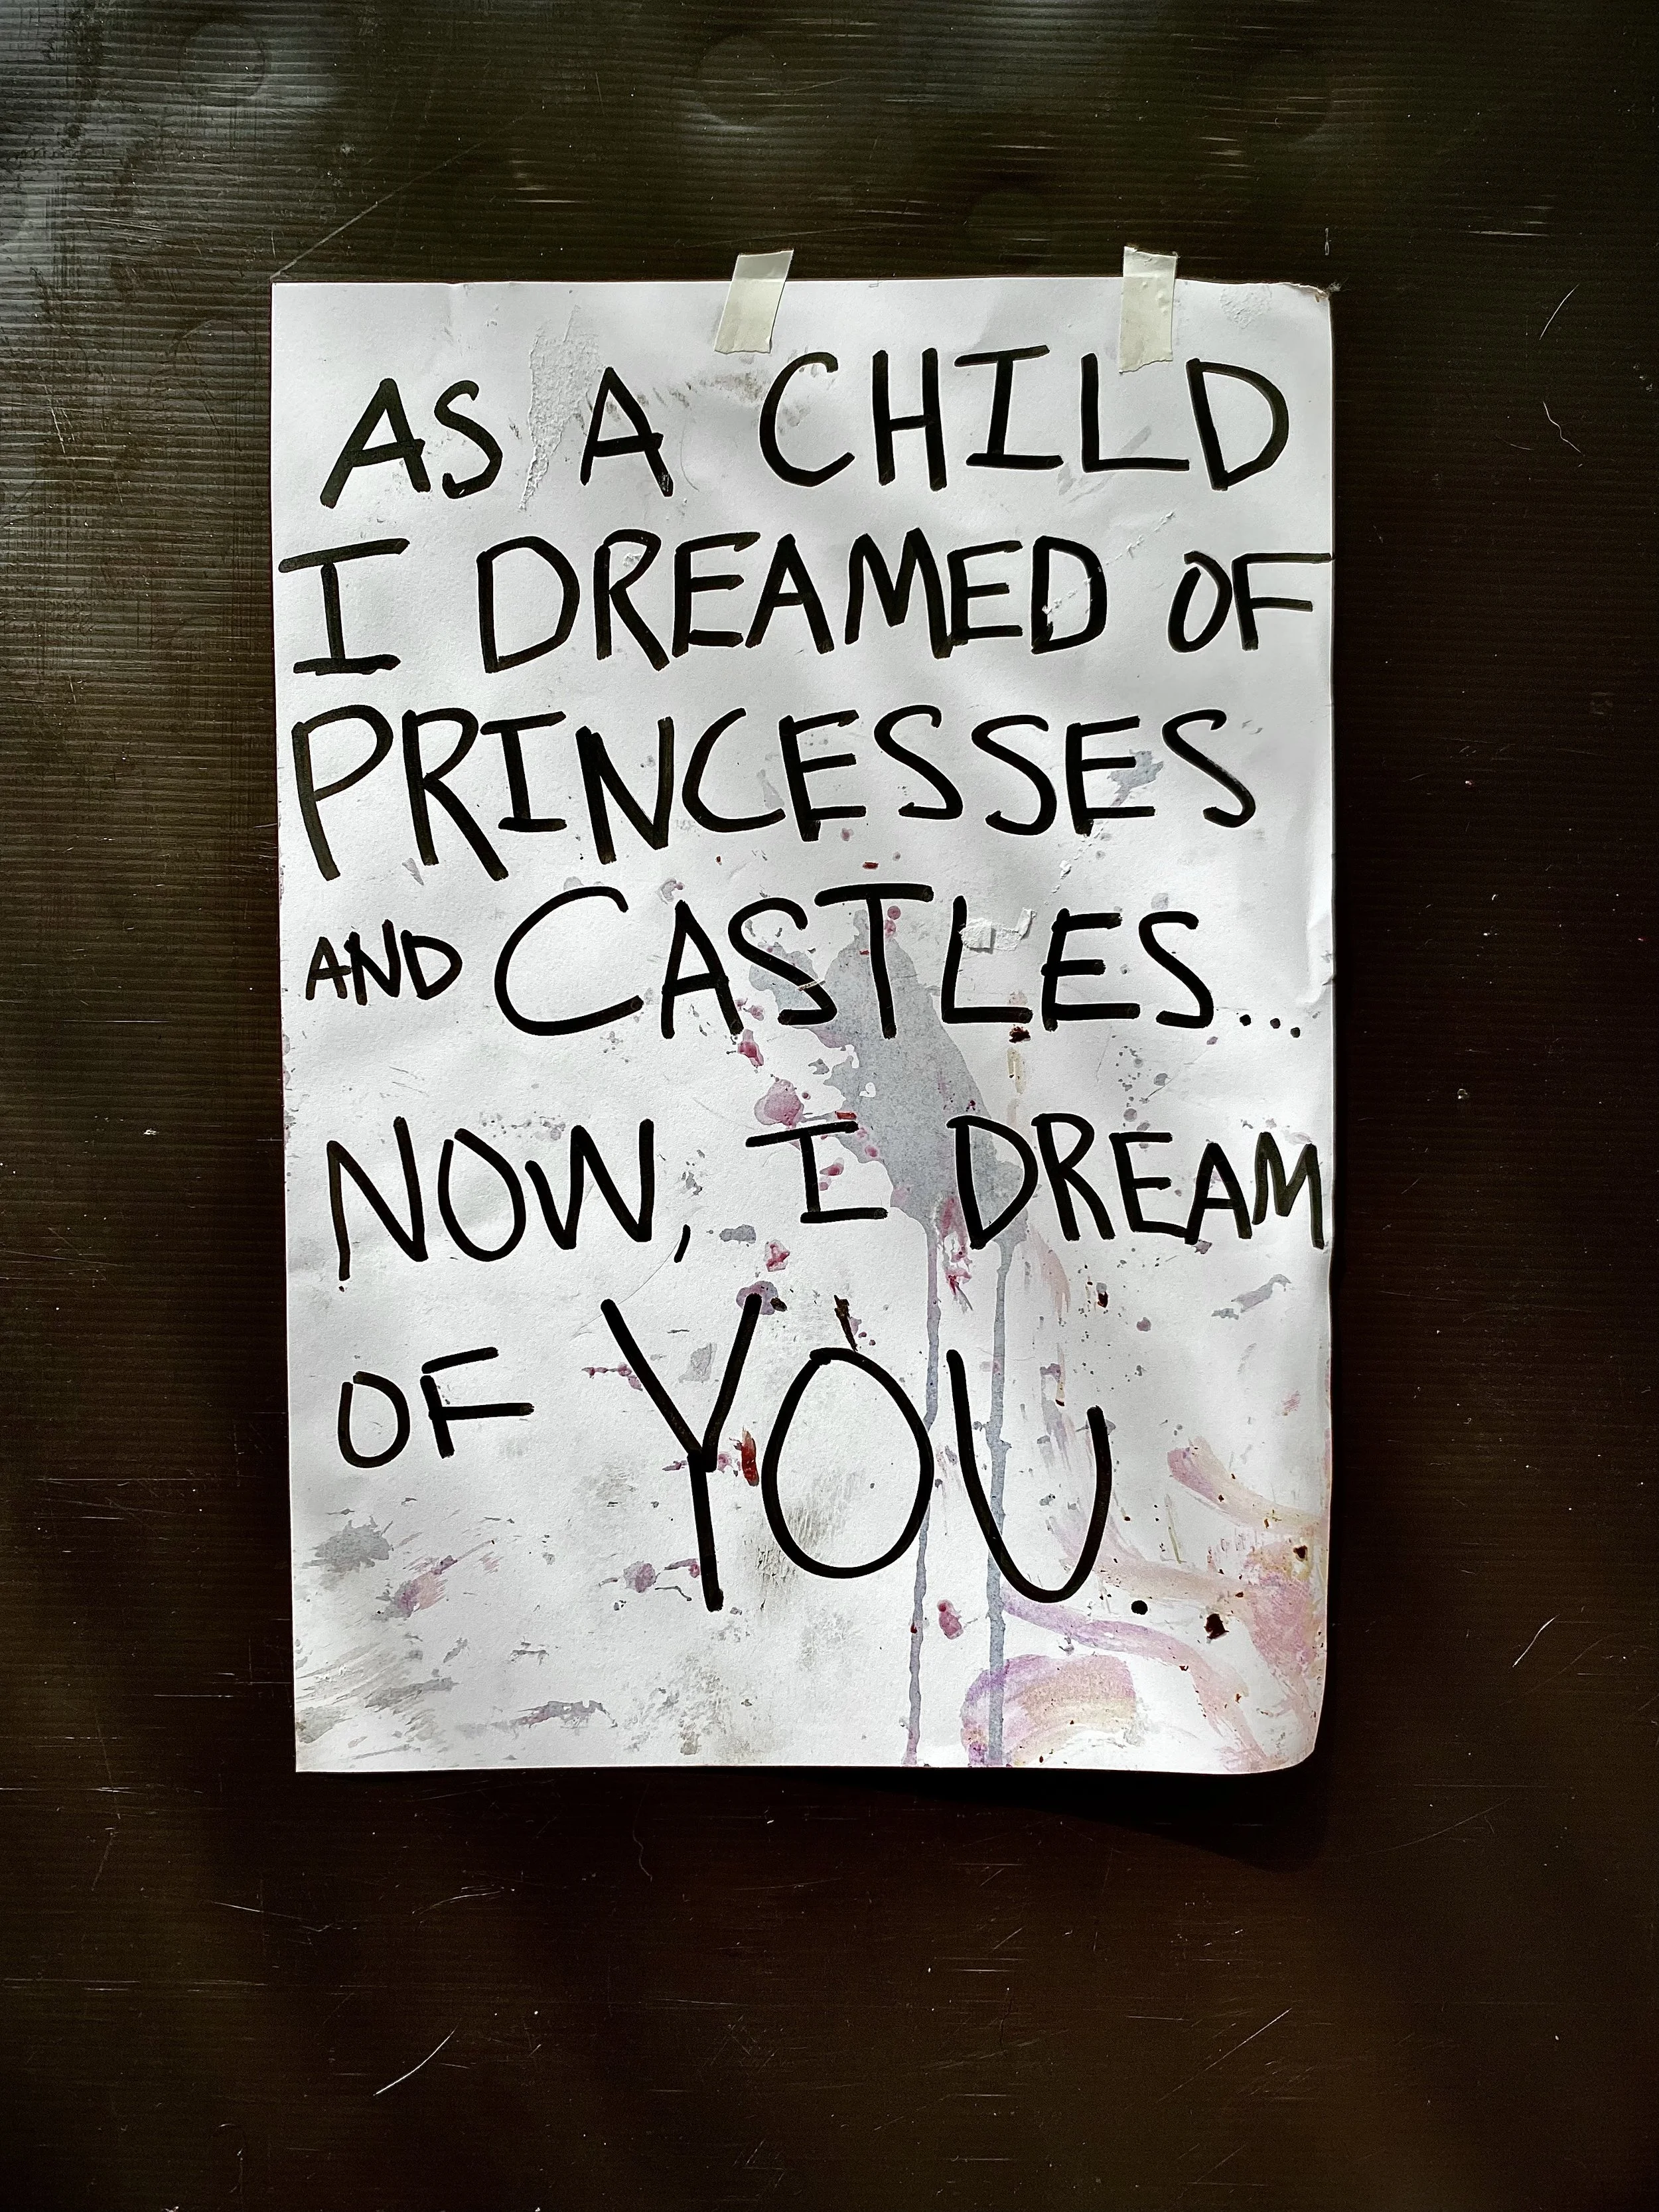 AS A CHILD
I DREAMED OF
PRINCESSES
AND CASTLES...
NOW, I DREAM
OF YOU.